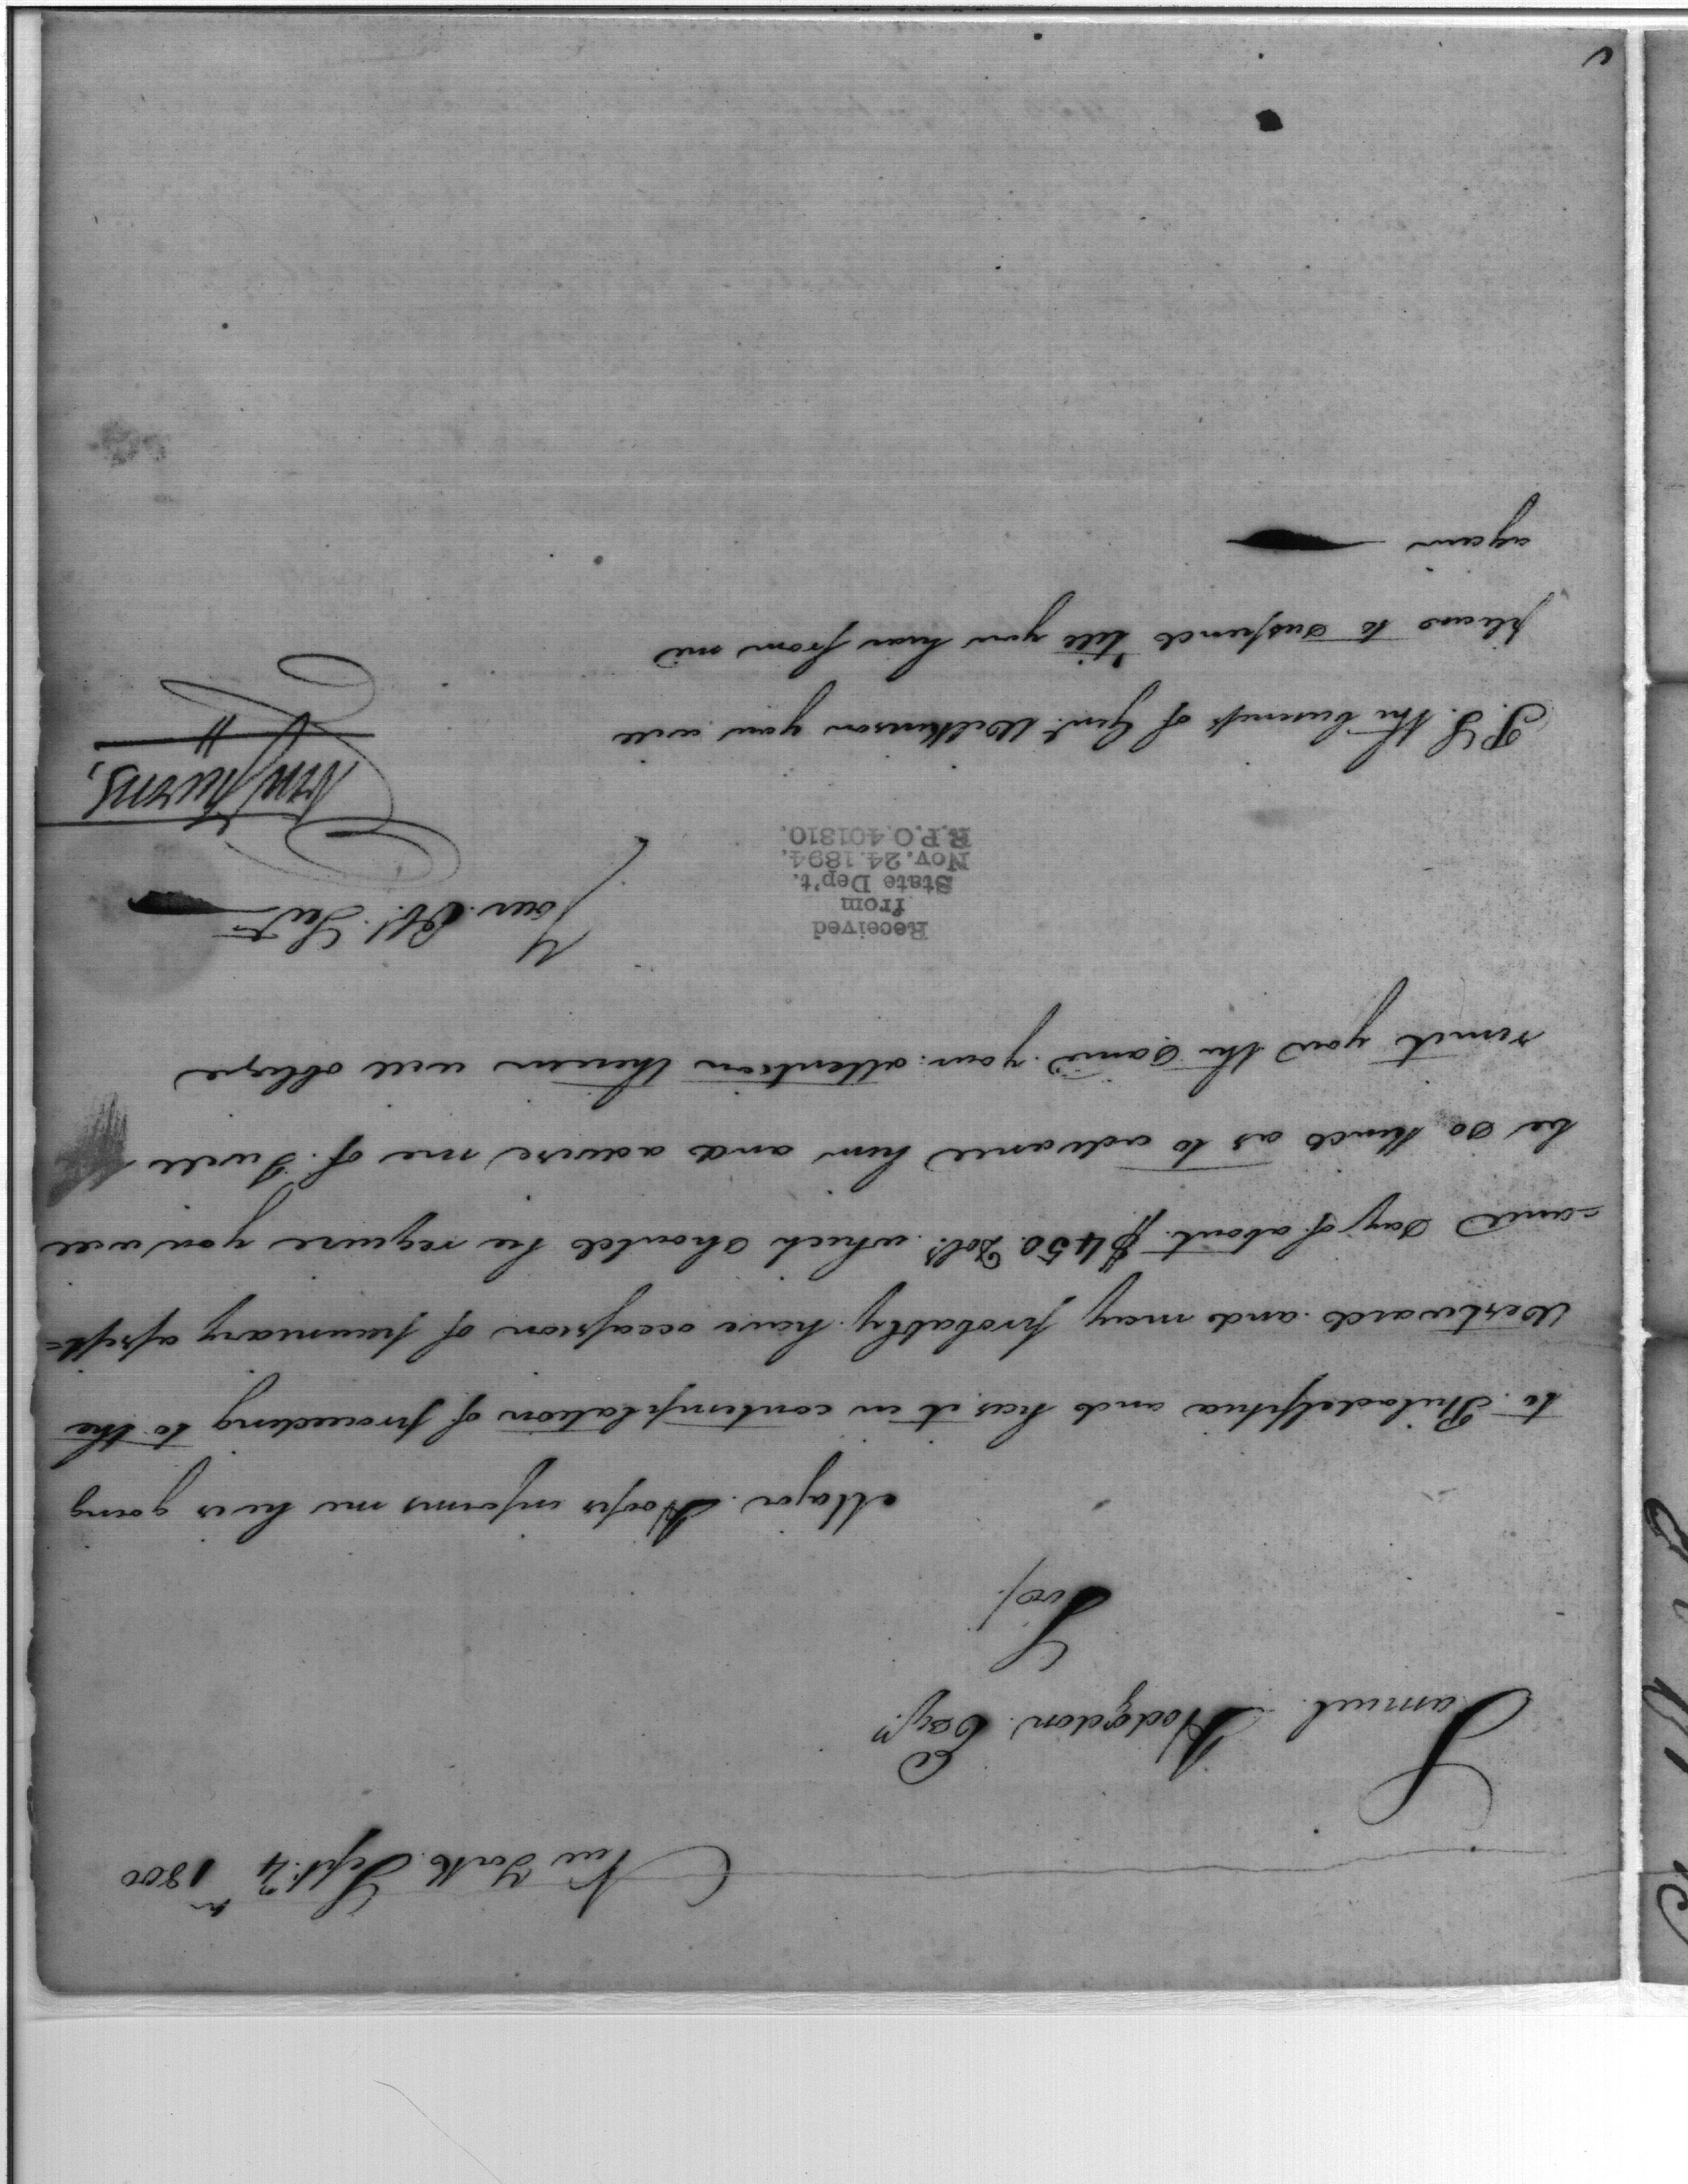 New York Sept: 4th 1800
Samuel Hodgdon Esqr.
Sir/
Major Hoops informs me he is going
to Philadelphia and has it in contemplation of proceeding to the
Westward and may probably have occasion of pecuniary assist=
=ance say of about $450 Dolls. which should he require you will
be so kind as to advance him and advise me of. I will
remit you the same. your attention therein will oblige
Your Ob. Servt
P.S. the business of Genl. Wilkinson you will
please to suspend till you hear from me
again
Received
from
State Dep't.
Nov. 24. 1894.
R.P.O. 401810.